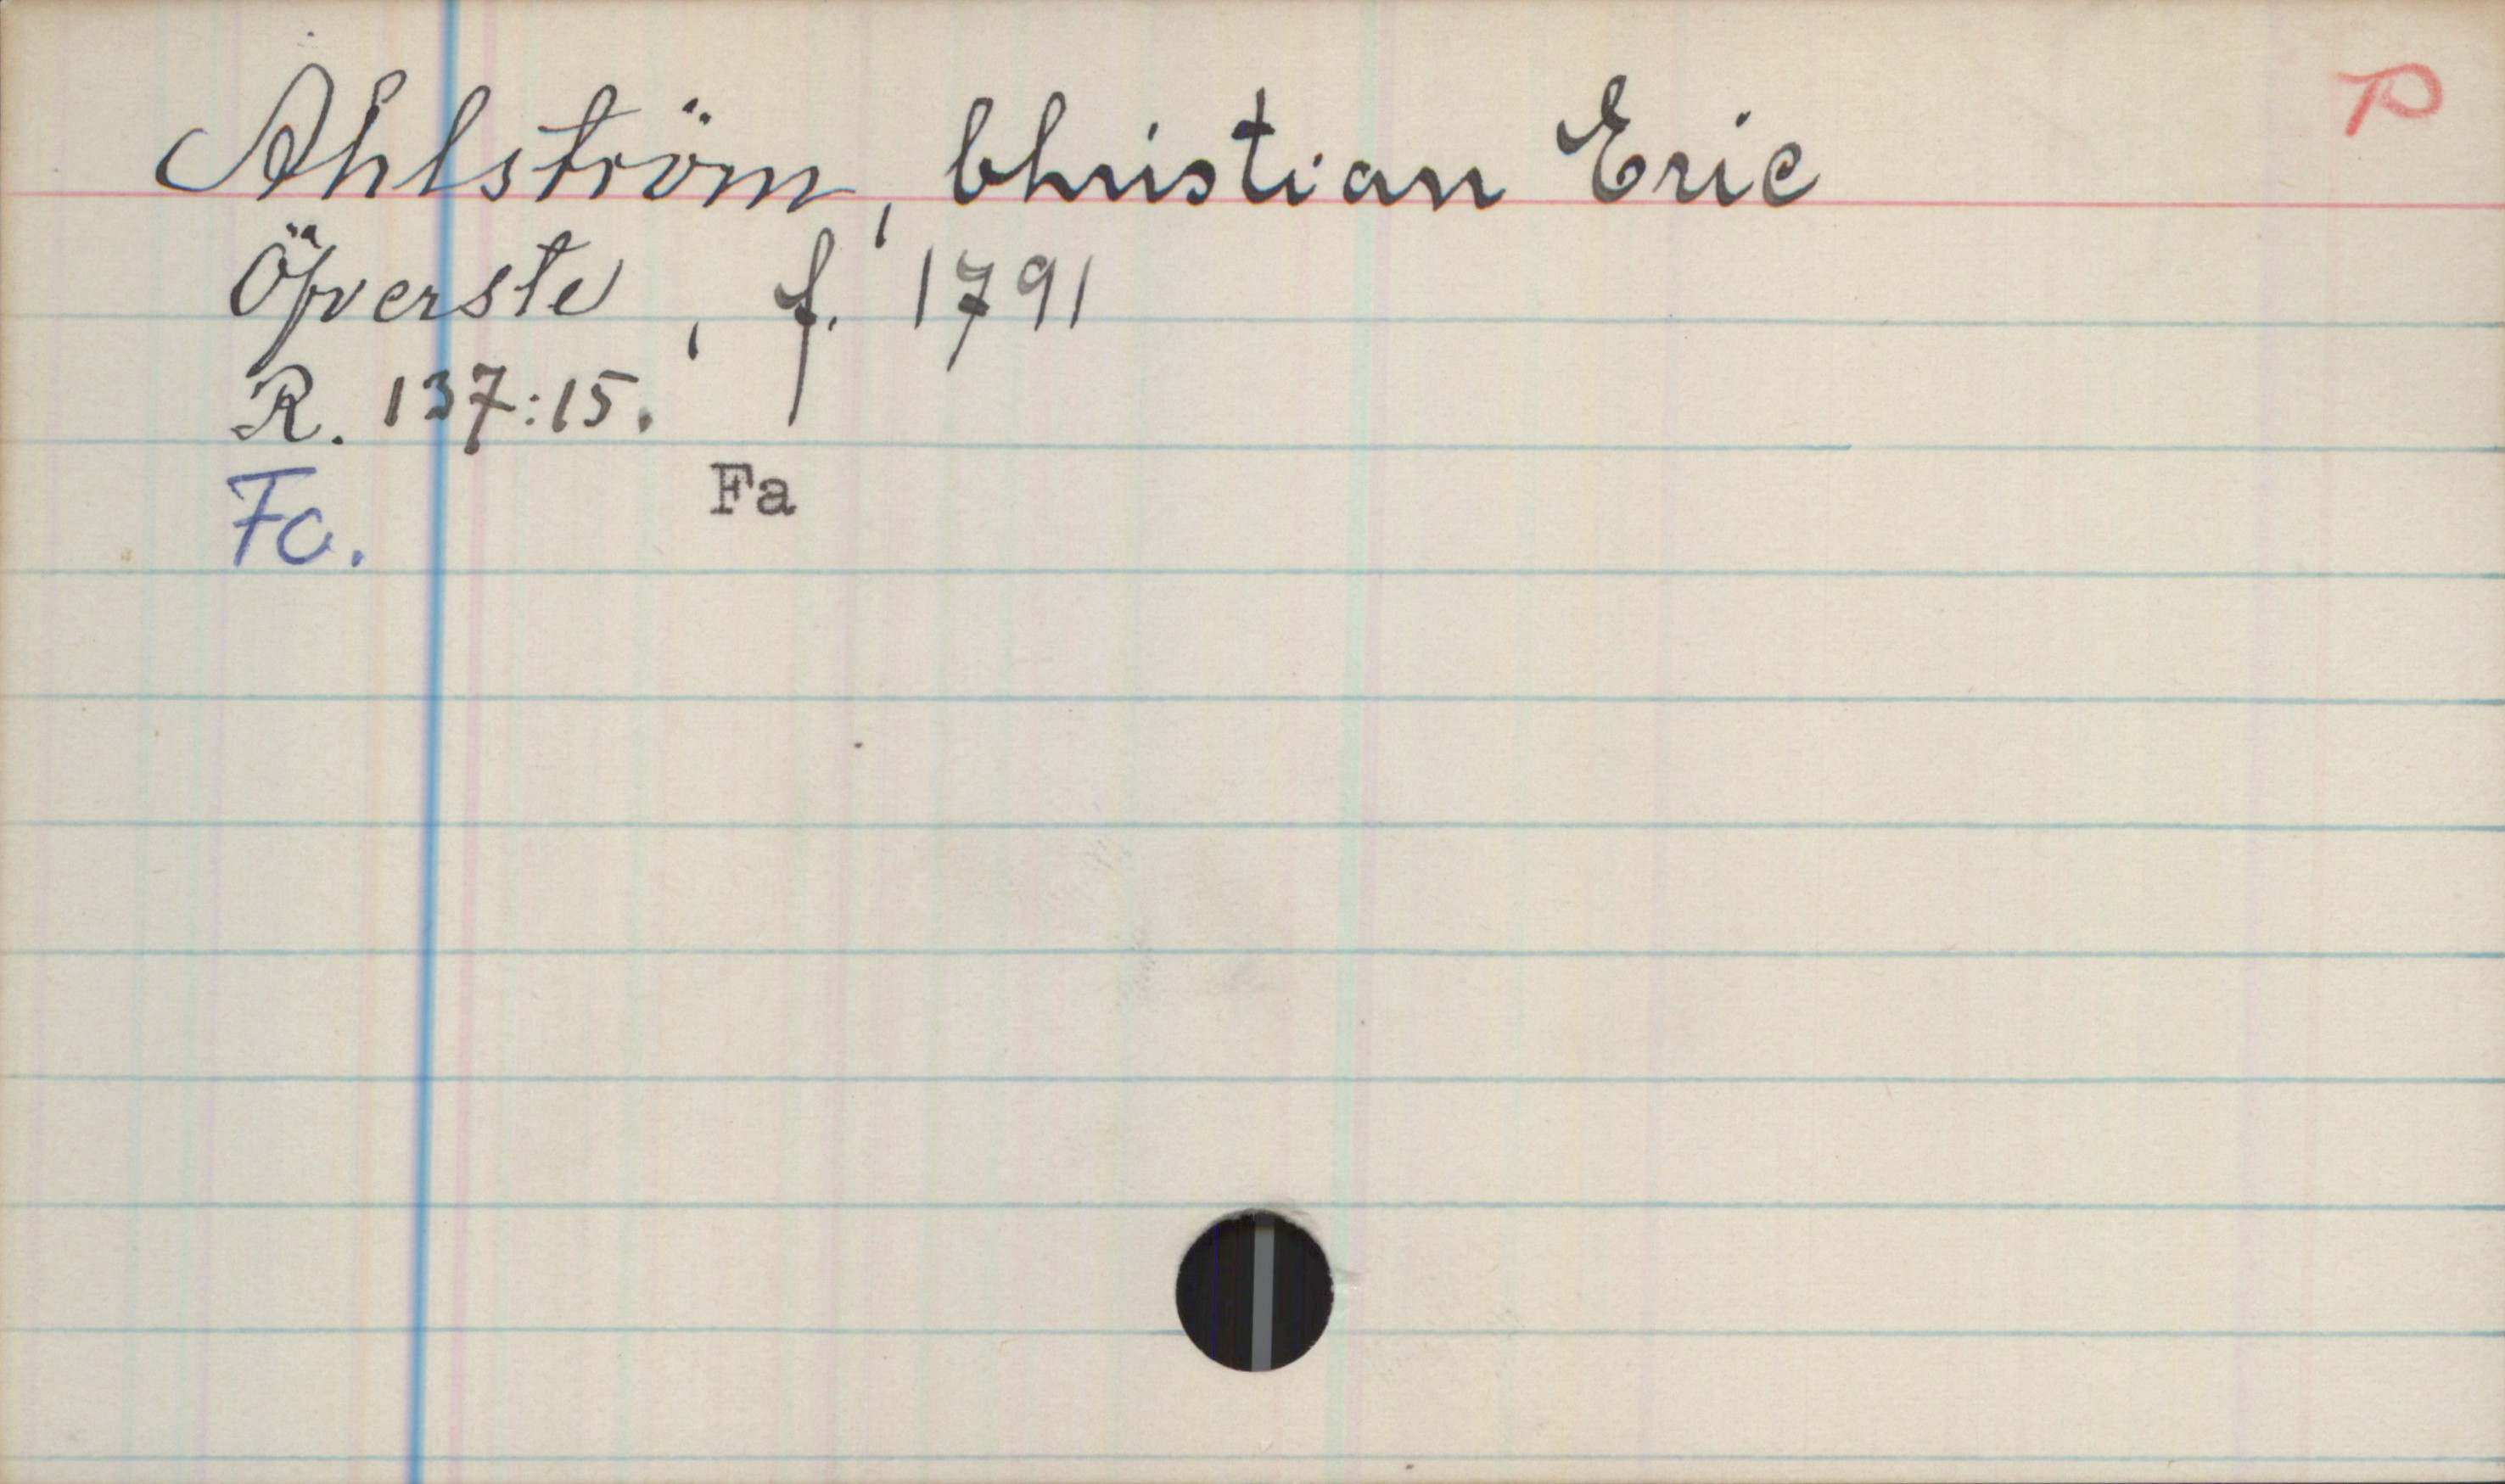 P
Ahlström, Christian Eric
Öfverste, f. 1791
R. 137:15.
Fc. Fa